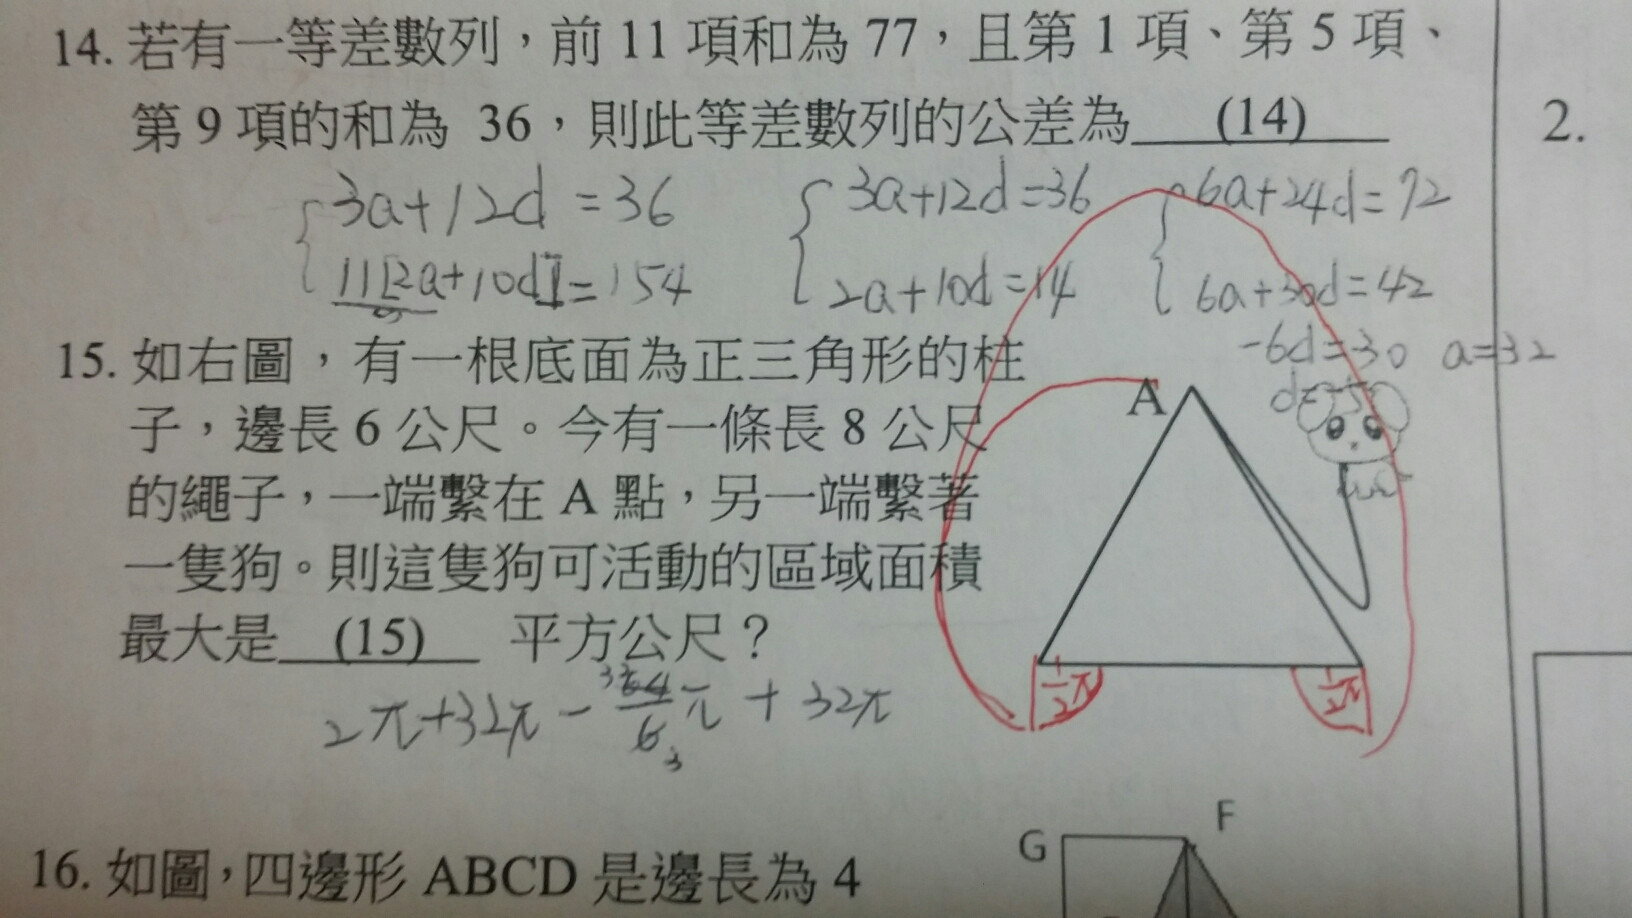 14. 若有一等差數列，前 11 項和為 77，且第 1 項、第 5 項、
第 9 項的和為 36，則此等差數列的公差為 (14)
2.
3a+12d=36
11[2a+10d]=154
3a+12d=36
2a+10d=14
6a+24d=72
6a+30d=42
-6d=30 a=32
d=-5
15. 如右圖，有一根底面為正三角形的柱
子，邊長 6 公尺。今有一條長 8 公尺
的繩子，一端繫在 A 點，另一端繫著
一隻狗。則這隻狗可活動的區域面積
最大是 (15) 平方公尺？
A
1/2π
1/2π
2π+32π-64/6π+32π
32
3
16. 如圖，四邊形 ABCD 是邊長為 4
G
F